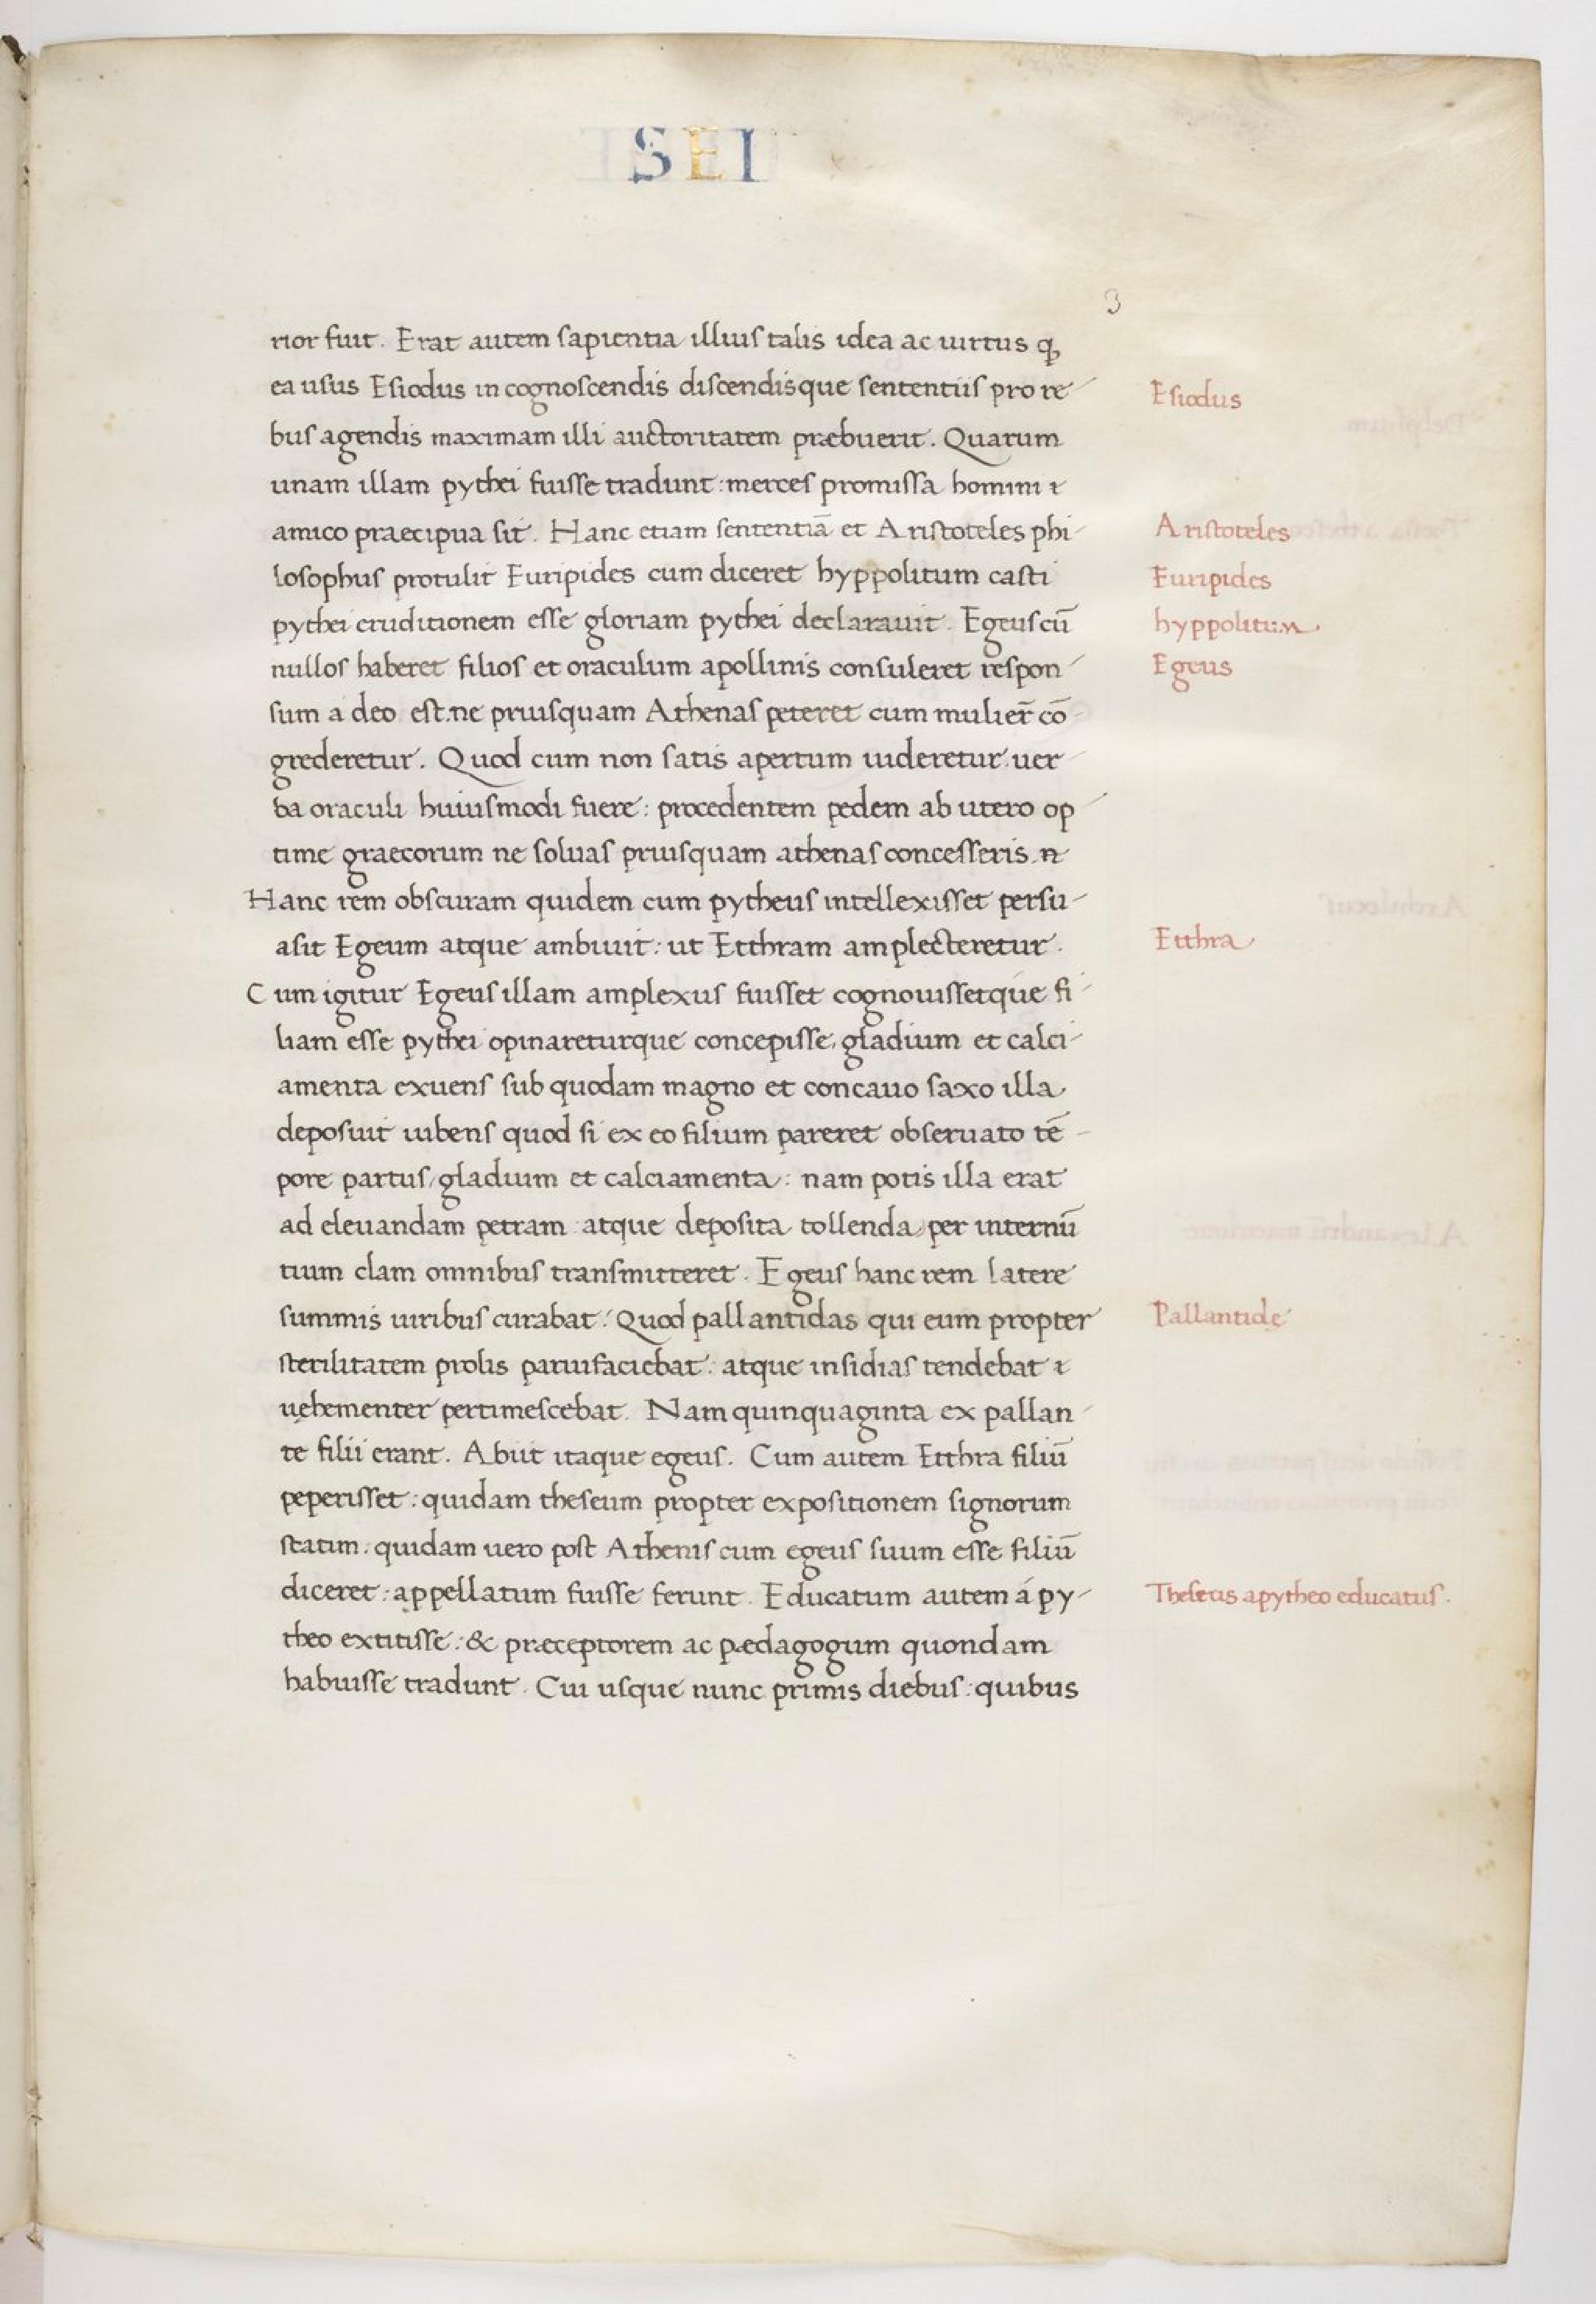 SEI
3
rior fuit. Erat autem sapientia illius talis idea ac uirtus ꝙ
ea usus Esiodus in cognoscendis discendisque sententiis pro re
bus agendis maximam illi auctoritatem præbuerit. Quarum
unam illam pythei fuisse tradunt: merces promissa homini &
amico praecipua sit. Hanc etiam sententiā et Aristoteles phi
losophus protulit Euripides cum diceret hyppolitum casti
pythei eruditionem esse gloriam pythei declarauit. Egeus cū
nullos haberet filios et oraculum apollinis consuleret respon
sum a deo est: ne priusquam Athenas peteret cum mulier̄ cō
grederetur. Quod cum non satis apertum uideretur uer
ba oraculi huiusmodi fuere: procedentem pedem ab utero op
time graecorum ne soluas priusquam athenas concesseris.
Hanc rem obscuram quidem cum pytheus intellexisset persu
asit Egeum atque ambiuit: ut Etthram amplecteretur.
Cum igitur Egeus illam amplexus fuisset cognouissetque fi
liam esse pythei opinareturque concepisse, gladium et calci
amenta exuens sub quodam magno et concauo saxo illa
deposuit iubens quod si ex eo filium pareret obseruato tē
pore partus/gladium et calciamenta: nam potis illa erat
ad eleuandam petram atque deposita tollenda, per internū
tium clam omnibus transmitteret. Egeus hanc rem latere
summis uiribus curabat: Quod pallantidas qui eum propter
sterilitatem prolis paruifaciebat: atque insidias tendebat &
uehementer pertimescebat. Nam quinquaginta ex pallan
te filii erant. Abiit itaque egeus. Cum autem Etthra filiū
peperisset: quidam theseum propter expositionem signorum
statim: quidam uero post Athenis cum egeus suum esse filiū
diceret: appellatum fuisse ferunt. Educatum autem á py
theo extitisse: & præceptorem ac pædagogum quondam
habuisse tradunt. Cui usque nunc primis diebus: quibus
Esiodus
Aristoteles
Euripides
hyppolitum
Egeus
Etthra
Pallantidę
Theseus a pytheo educatus.